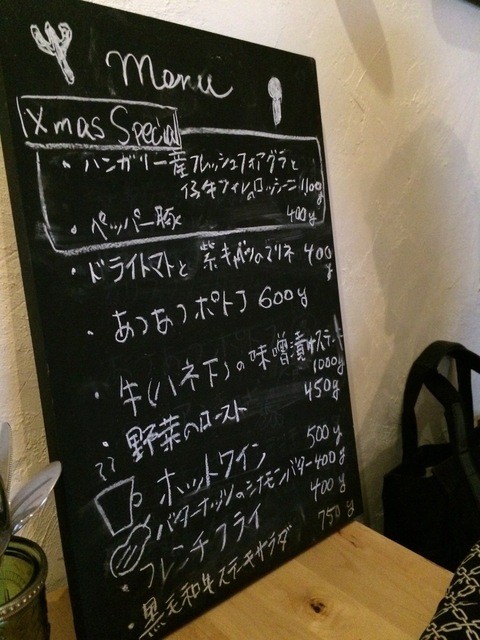 Menu
Xmas Special
・ハンガリー産フレッシュフォアグラと
仔牛フィレのロッシーニ 1100g
・ペッパー豚 400g
・ドライトマトと紫キャベツのマリネ 400g
・あつあつポトフ 600g
・牛(ハネ下)の味噌漬けステーキ 1000g
・野菜のロースト 450g
ホットワイン 500g
バターナッツのシナモンバター 400g
・フレンチフライ 400g
・黒毛和牛ステーキサラダ 750g